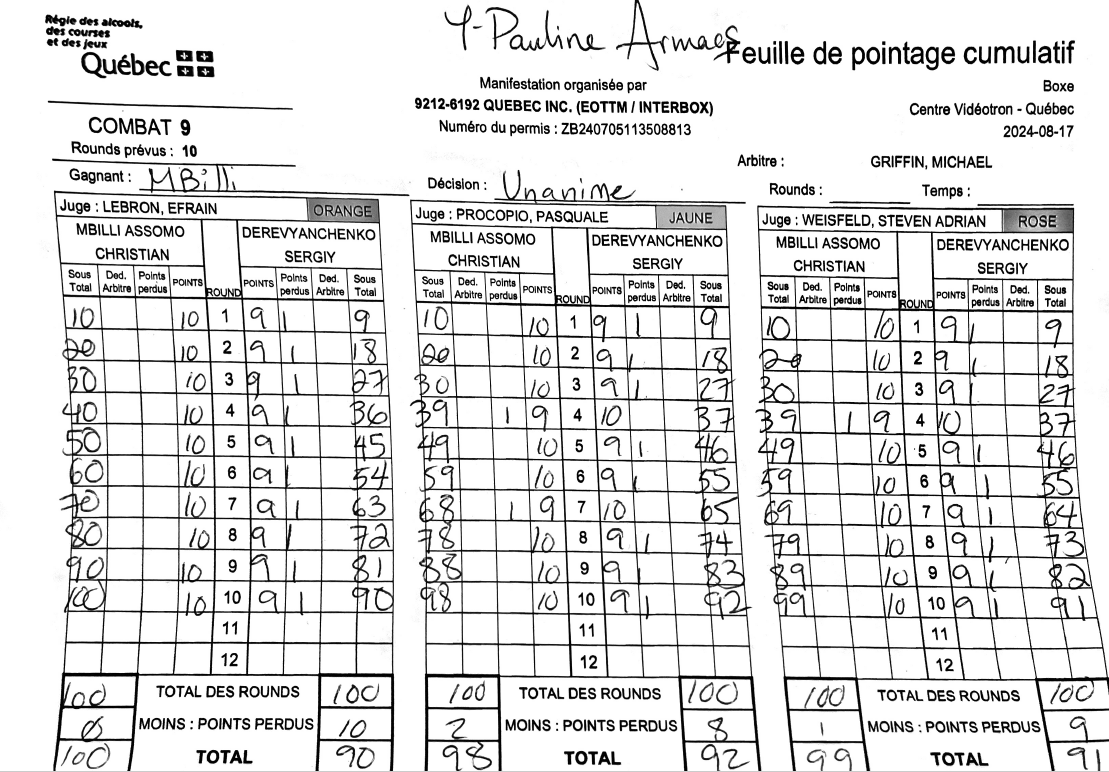 Y-Pauline Armaes
Régie des alcools,
des courses
et des jeux
Québec
Feuille de pointage cumulatif
Manifestation organisée par
9212-6192 QUEBEC INC. (EOTTM / INTERBOX)
Numéro du permis : ZB240705113508813
Boxe
Centre Vidéotron - Québec
2024-08-17
COMBAT 9
Rounds prévus : 10
Gagnant : MBilli
Décision : Unanime
Arbitre : GRIFFIN, MICHAEL
Rounds : Temps :
Juge : LEBRON, EFRAIN ORANGE
MBILLI ASSOMO CHRISTIAN DEREVYANCHENKO SERGIY
Sous Total Ded. Arbitre Points perdus POINTS ROUND POINTS Points perdus Ded. Arbitre Sous Total
10 10 1 9 1 9
20 10 2 9 1 18
30 10 3 9 1 27
40 10 4 9 1 36
50 10 5 9 1 45
60 10 6 9 1 54
70 10 7 9 1 63
80 10 8 9 1 72
90 10 9 9 1 81
100 10 10 9 1 90
11
12
100 TOTAL DES ROUNDS 100
0 MOINS : POINTS PERDUS 10
100 TOTAL 90
Juge : PROCOPIO, PASQUALE JAUNE
MBILLI ASSOMO CHRISTIAN DEREVYANCHENKO SERGIY
Sous Total Ded. Arbitre Points perdus POINTS ROUND POINTS Points perdus Ded. Arbitre Sous Total
10 10 1 9 1 9
20 10 2 9 1 18
30 10 3 9 1 27
39 1 9 4 10 37
49 10 5 9 1 46
59 10 6 9 1 55
68 1 9 7 10 65
78 10 8 9 1 74
88 10 9 9 1 83
98 10 10 9 1 92
11
12
100 TOTAL DES ROUNDS 100
2 MOINS : POINTS PERDUS 8
98 TOTAL 92
Juge : WEISFELD, STEVEN ADRIAN ROSE
MBILLI ASSOMO CHRISTIAN DEREVYANCHENKO SERGIY
Sous Total Ded. Arbitre Points perdus POINTS ROUND POINTS Points perdus Ded. Arbitre Sous Total
10 10 1 9 1 9
20 10 2 9 1 18
30 10 3 9 1 27
39 1 9 4 10 37
49 10 5 9 1 46
59 10 6 9 1 55
69 10 7 9 1 64
79 10 8 9 1 73
89 10 9 9 1 82
99 10 10 9 1 91
11
12
100 TOTAL DES ROUNDS 100
1 MOINS : POINTS PERDUS 9
99 TOTAL 91